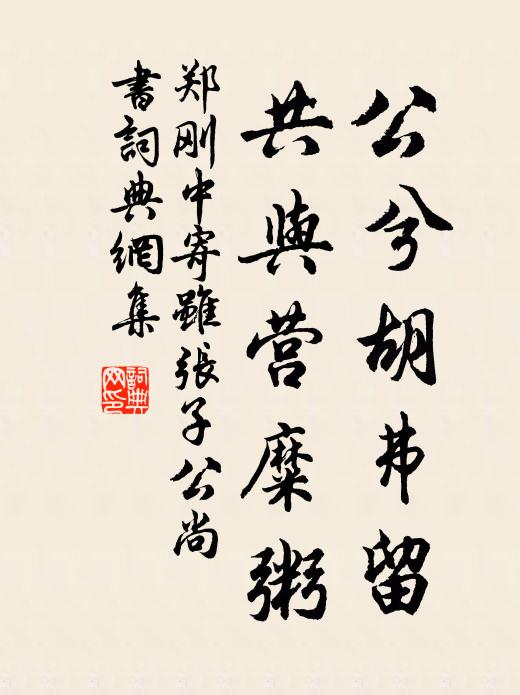 公兮胡弗留
共與营糜粥
郑刚中寄雖張子公尚
書詞典網集
詞典
网印